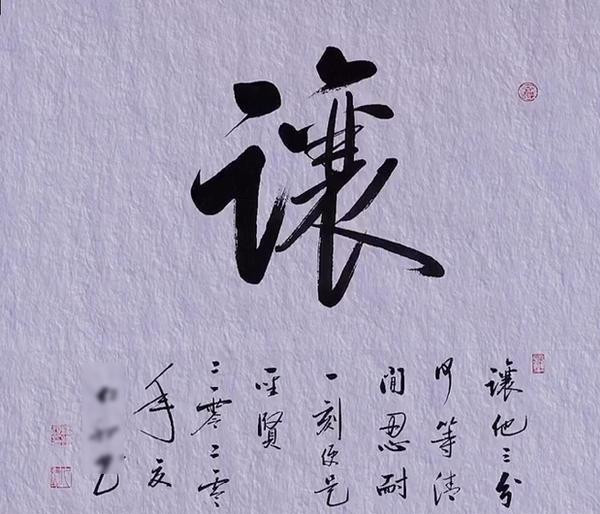 讓
讓他三分
何等清
閒忍耐
一刻便是
圣賢
二零二零
年夏